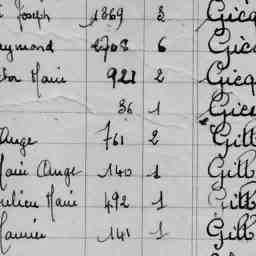 Joseph 1369 3 Gicq
aymond 2708 6 Gicq
Marie 921 2 Gicq
36 1 Gicq
Ange 761 2 Gill
Marie Ange 140 1 Gill
ulien Marie 492 1 Gill
Maurice 141 1 Gill